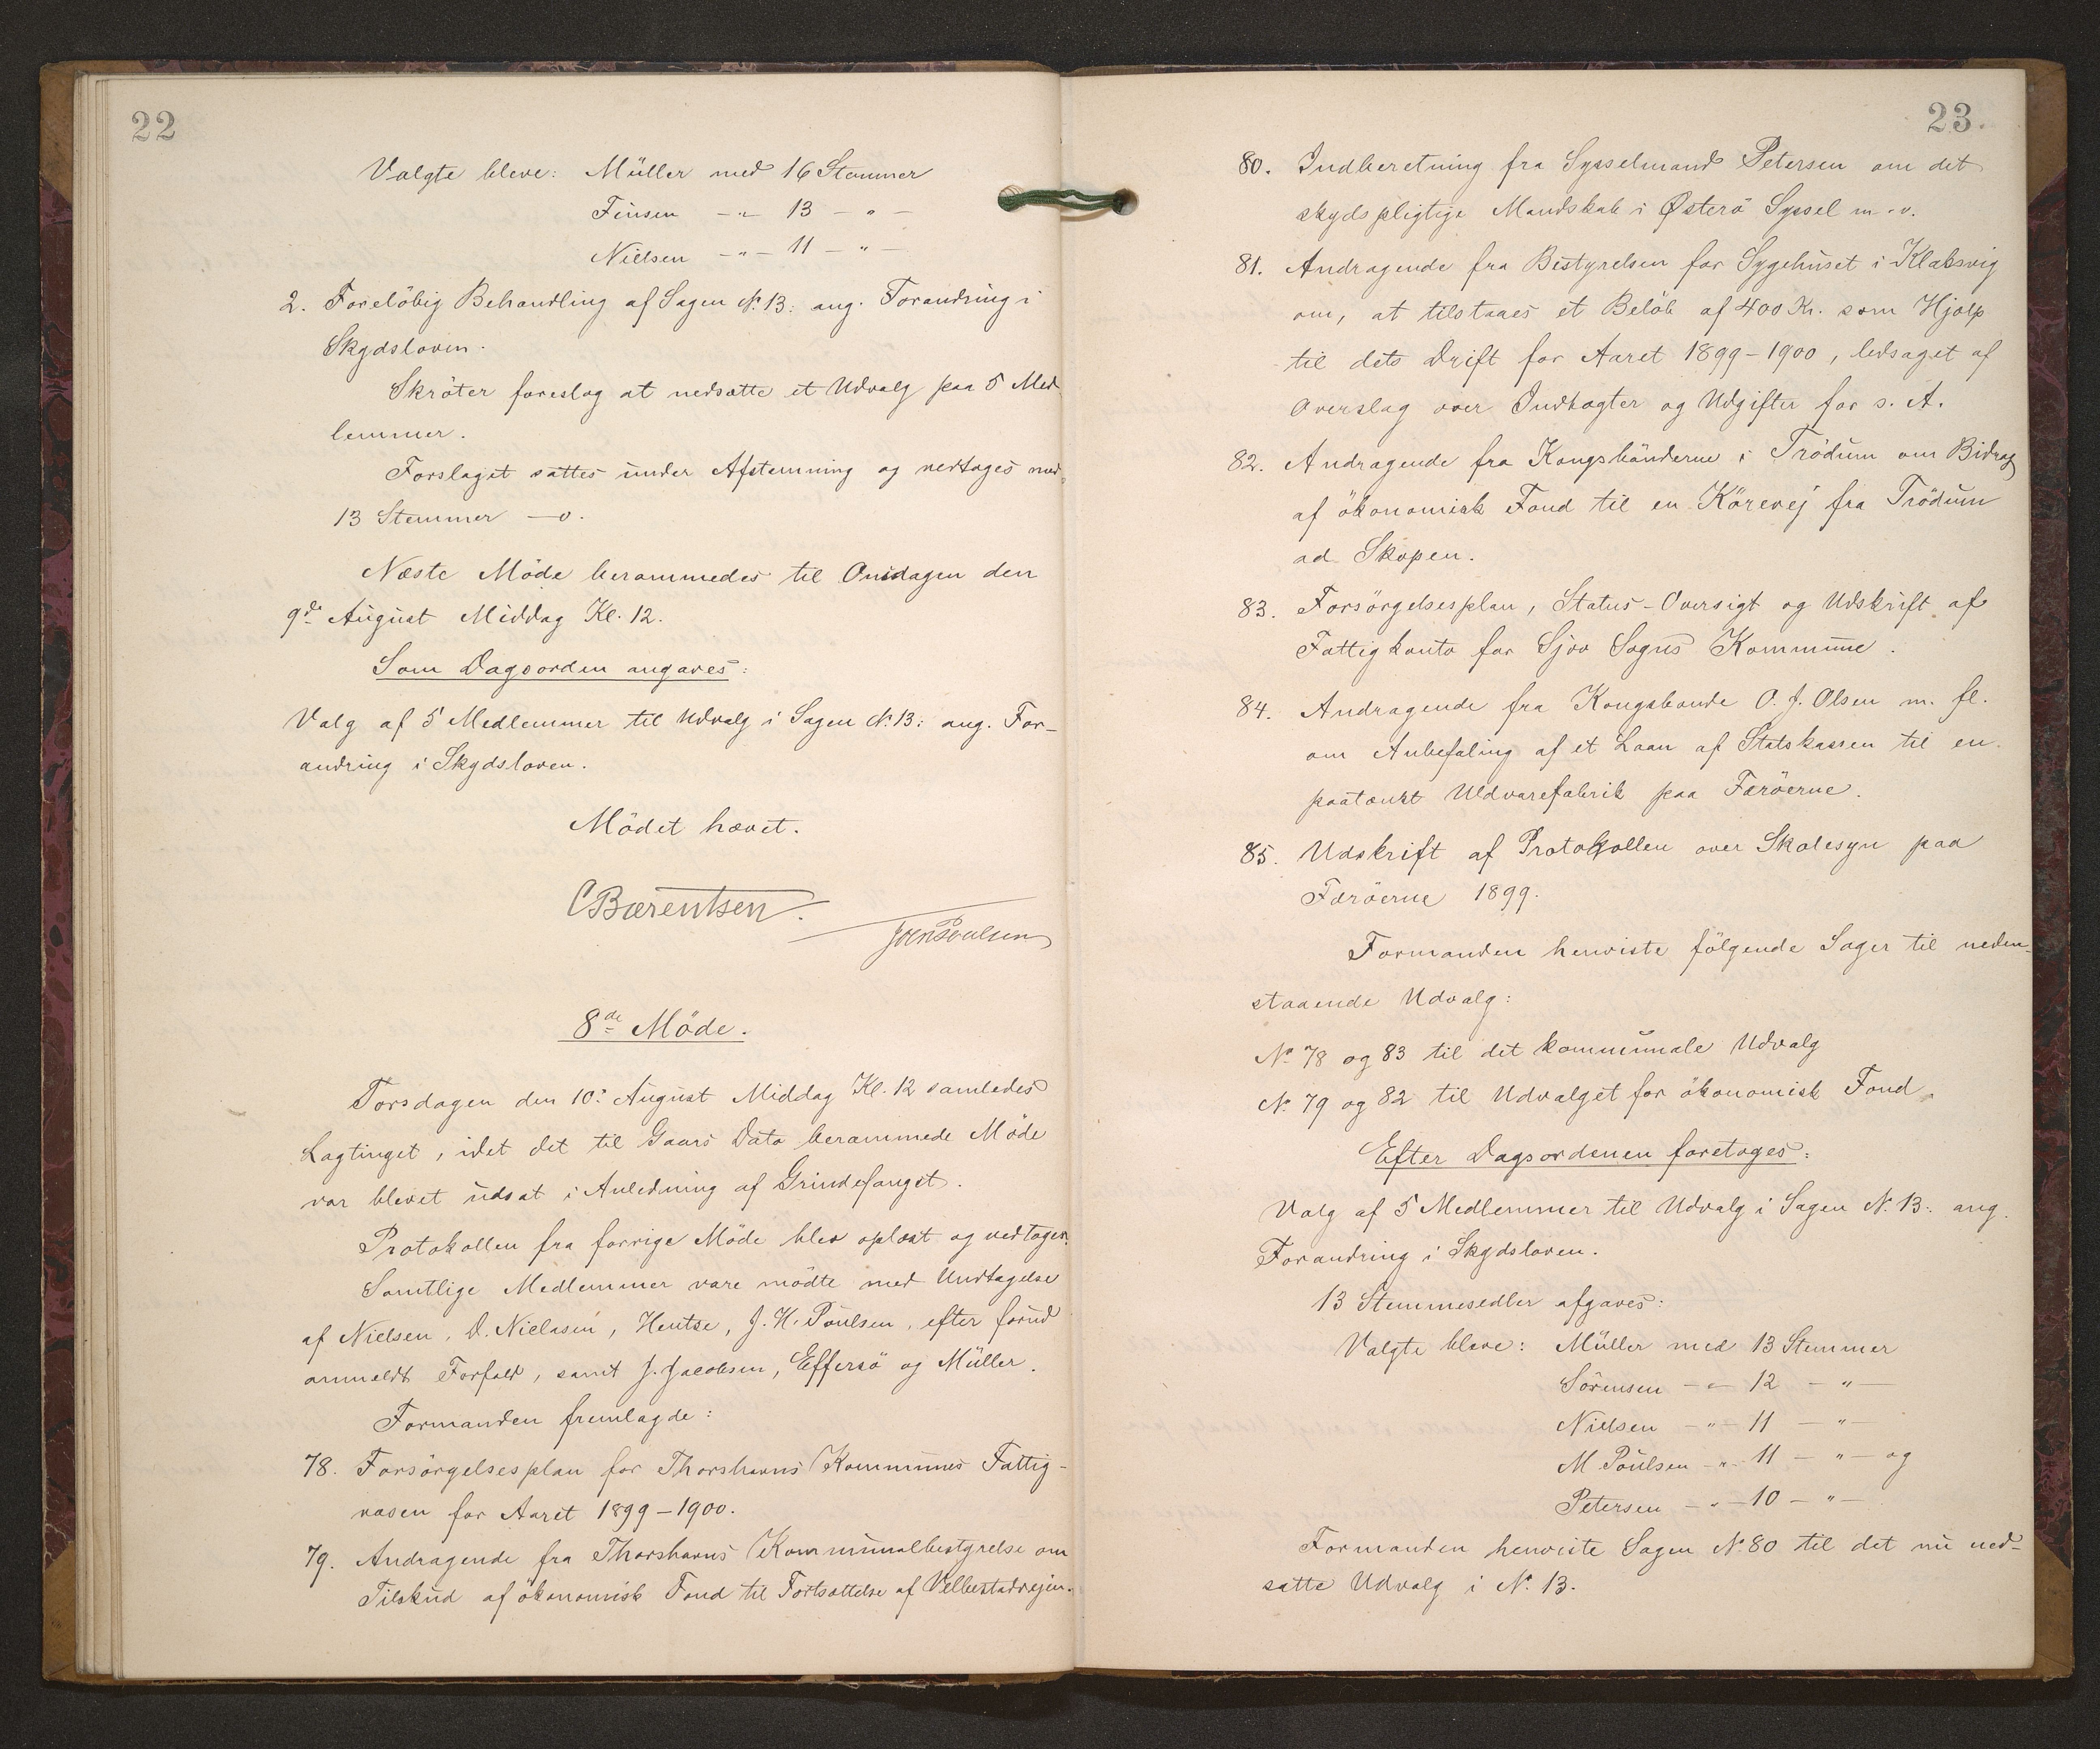 22
Valgte bleve: Müller med 16 Stemmer
Finsen -"- 13 -"-
Nielsen -"- 11 -"-
2. Foreløbig Behandling af Sagen No. 13: ang. Forandring i
Skydsloven.
Skrøter foreslog at nedsætte et Udvalg paa 5 Med-
lemmer.
Forslaget sattes under Afstemning og vedtoges med
13 Stemmer -0.
Næste Møde berammedes til Onsdagen den
9de August Middag Kl. 12.
Som Dagsorden angaves:
Valg af 5 Medlemmer til Udvalg i Sagen No. 13: ang. For-
andring i Skydsloven.
Mødet hævet.
CBærentsen.
Joen Poulsen
8de Møde.
Torsdagen den 10: August Middag Kl. 12 samledes
Lagtinget, idet det til Gaars Dato berammede Møde
var blevet udsat i Anledning af Grindefangst.
Protokollen fra forrige Møde blev oplæst og vedtoges.
Samtlige Medlemmer vare mødte med Undtagelse
af Nielsen, D. Nielasen, Hentze, J. H. Poulsen, efter forud
anmeldt Forfald, samt J. Jacobsen, Effersø og Müller.
Formanden fremlagde:
78. Forsørgelsesplan for Thorshavns Kommunes Fattig-
væsen for Aaret 1899-1900.
79. Andragende fra Thorshavns Kommunalbestyrelse om
Tilskud af økonomisk Fond til Fortsættelse af Velbestadvejen.
23.
80. Indberetning fra Sysselmand Petersen om det
skydspligtige Mandskab i Østerø Syssel m. v.
81. Andragende fra Bestyrelsen for Sygehuset i Klaksvig
om, at tilstaaes et Beløb af 400 Kr. som Hjælp
til dets Drift for Aaret 1899-1900, ledsaget af
Overslag over Indtægter og Udgifter for s. A.
82. Andragende fra Kongsbønderne i Trødum om Bidrag
af økonomisk Fond til en Kørevej fra Trødum
ad Skopen.
83. Forsørgelsesplan, Status-Oversigt og Udskrift af
Fattigkonto for Sjov Sogns Kommune.
84. Andragende fra Kongsbonde O. J. Olsen m. fl.
om Anbefaling af et Laan af Statskassen til en
paatænkt Uldvarefabrik paa Færøerne.
85. Udskrift af Protokollen over Skolesyn paa
Færøerne 1899.
Formanden henviste følgende Sager til neden-
staaende Udvalg:
No. 78 og 83 til det kommunale Udvalg
No. 79 og 82 til Udvalget for økonomisk Fond.
Efter Dagsordenen foretoges:
Valg af 5 Medlemmer til Udvalg i Sagen No. 13: ang.
Forandring i Skydsloven.
13 Stemmesedler afgaves:
Valgte bleve: Müller med 13 Stemmer
Sørensen -"- 12 -"-
Nielsen -"- 11 -"-
M. Poulsen -"- 11 -"- og
Petersen -"- 10 -"-
Formanden henviste Sagen No. 80 til det nu ned-
satte Udvalg i No. 13.